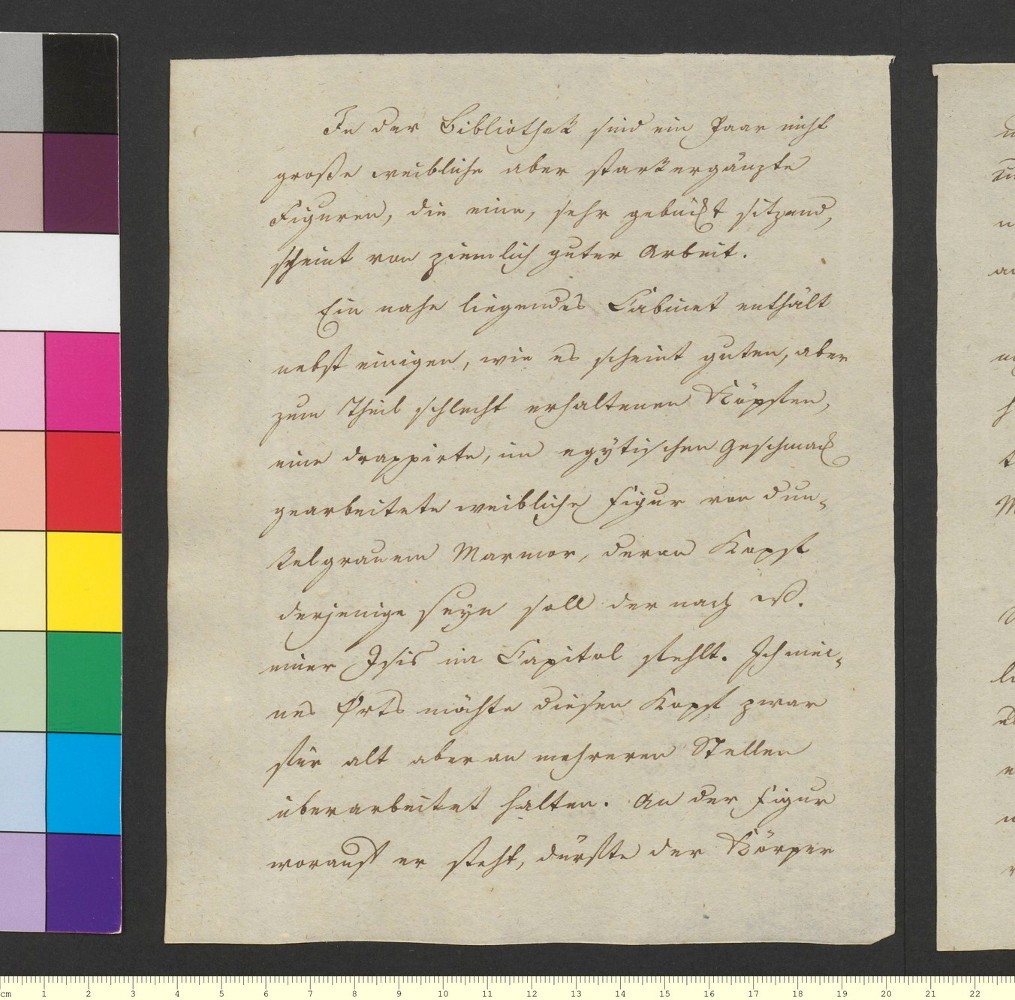 In der Bibliothek sind ein Paar nicht
große weibliche aber stark ergänzte
Figuren, die eine, sehr gebückt sitzend,
scheint von ziemlich guter Arbeit.
Ein nahe liegendes Cabinet enthält
nebst einigen, wie es scheint guten, aber
zum Theil schlecht erhaltenen Köpfen,
eine drappirte, im egÿtischen Geschmack
gearbeitete weibliche Figur von dun-
kelgrauem Marmor, deren Kopf
derjenige seyn soll der nach
einer Isis im Capitol fehlt. Ich mei-
nes Orts möchte diesen Kopf zwar
für alt aber an mehreren Stellen
überarbeitet halten. An der Figur
worauf er steht, dürfte der Körper
cm 1 2 3 4 5 6 7 8 9 10 11 12 13 14 15 16 17 18 19 20 21 22